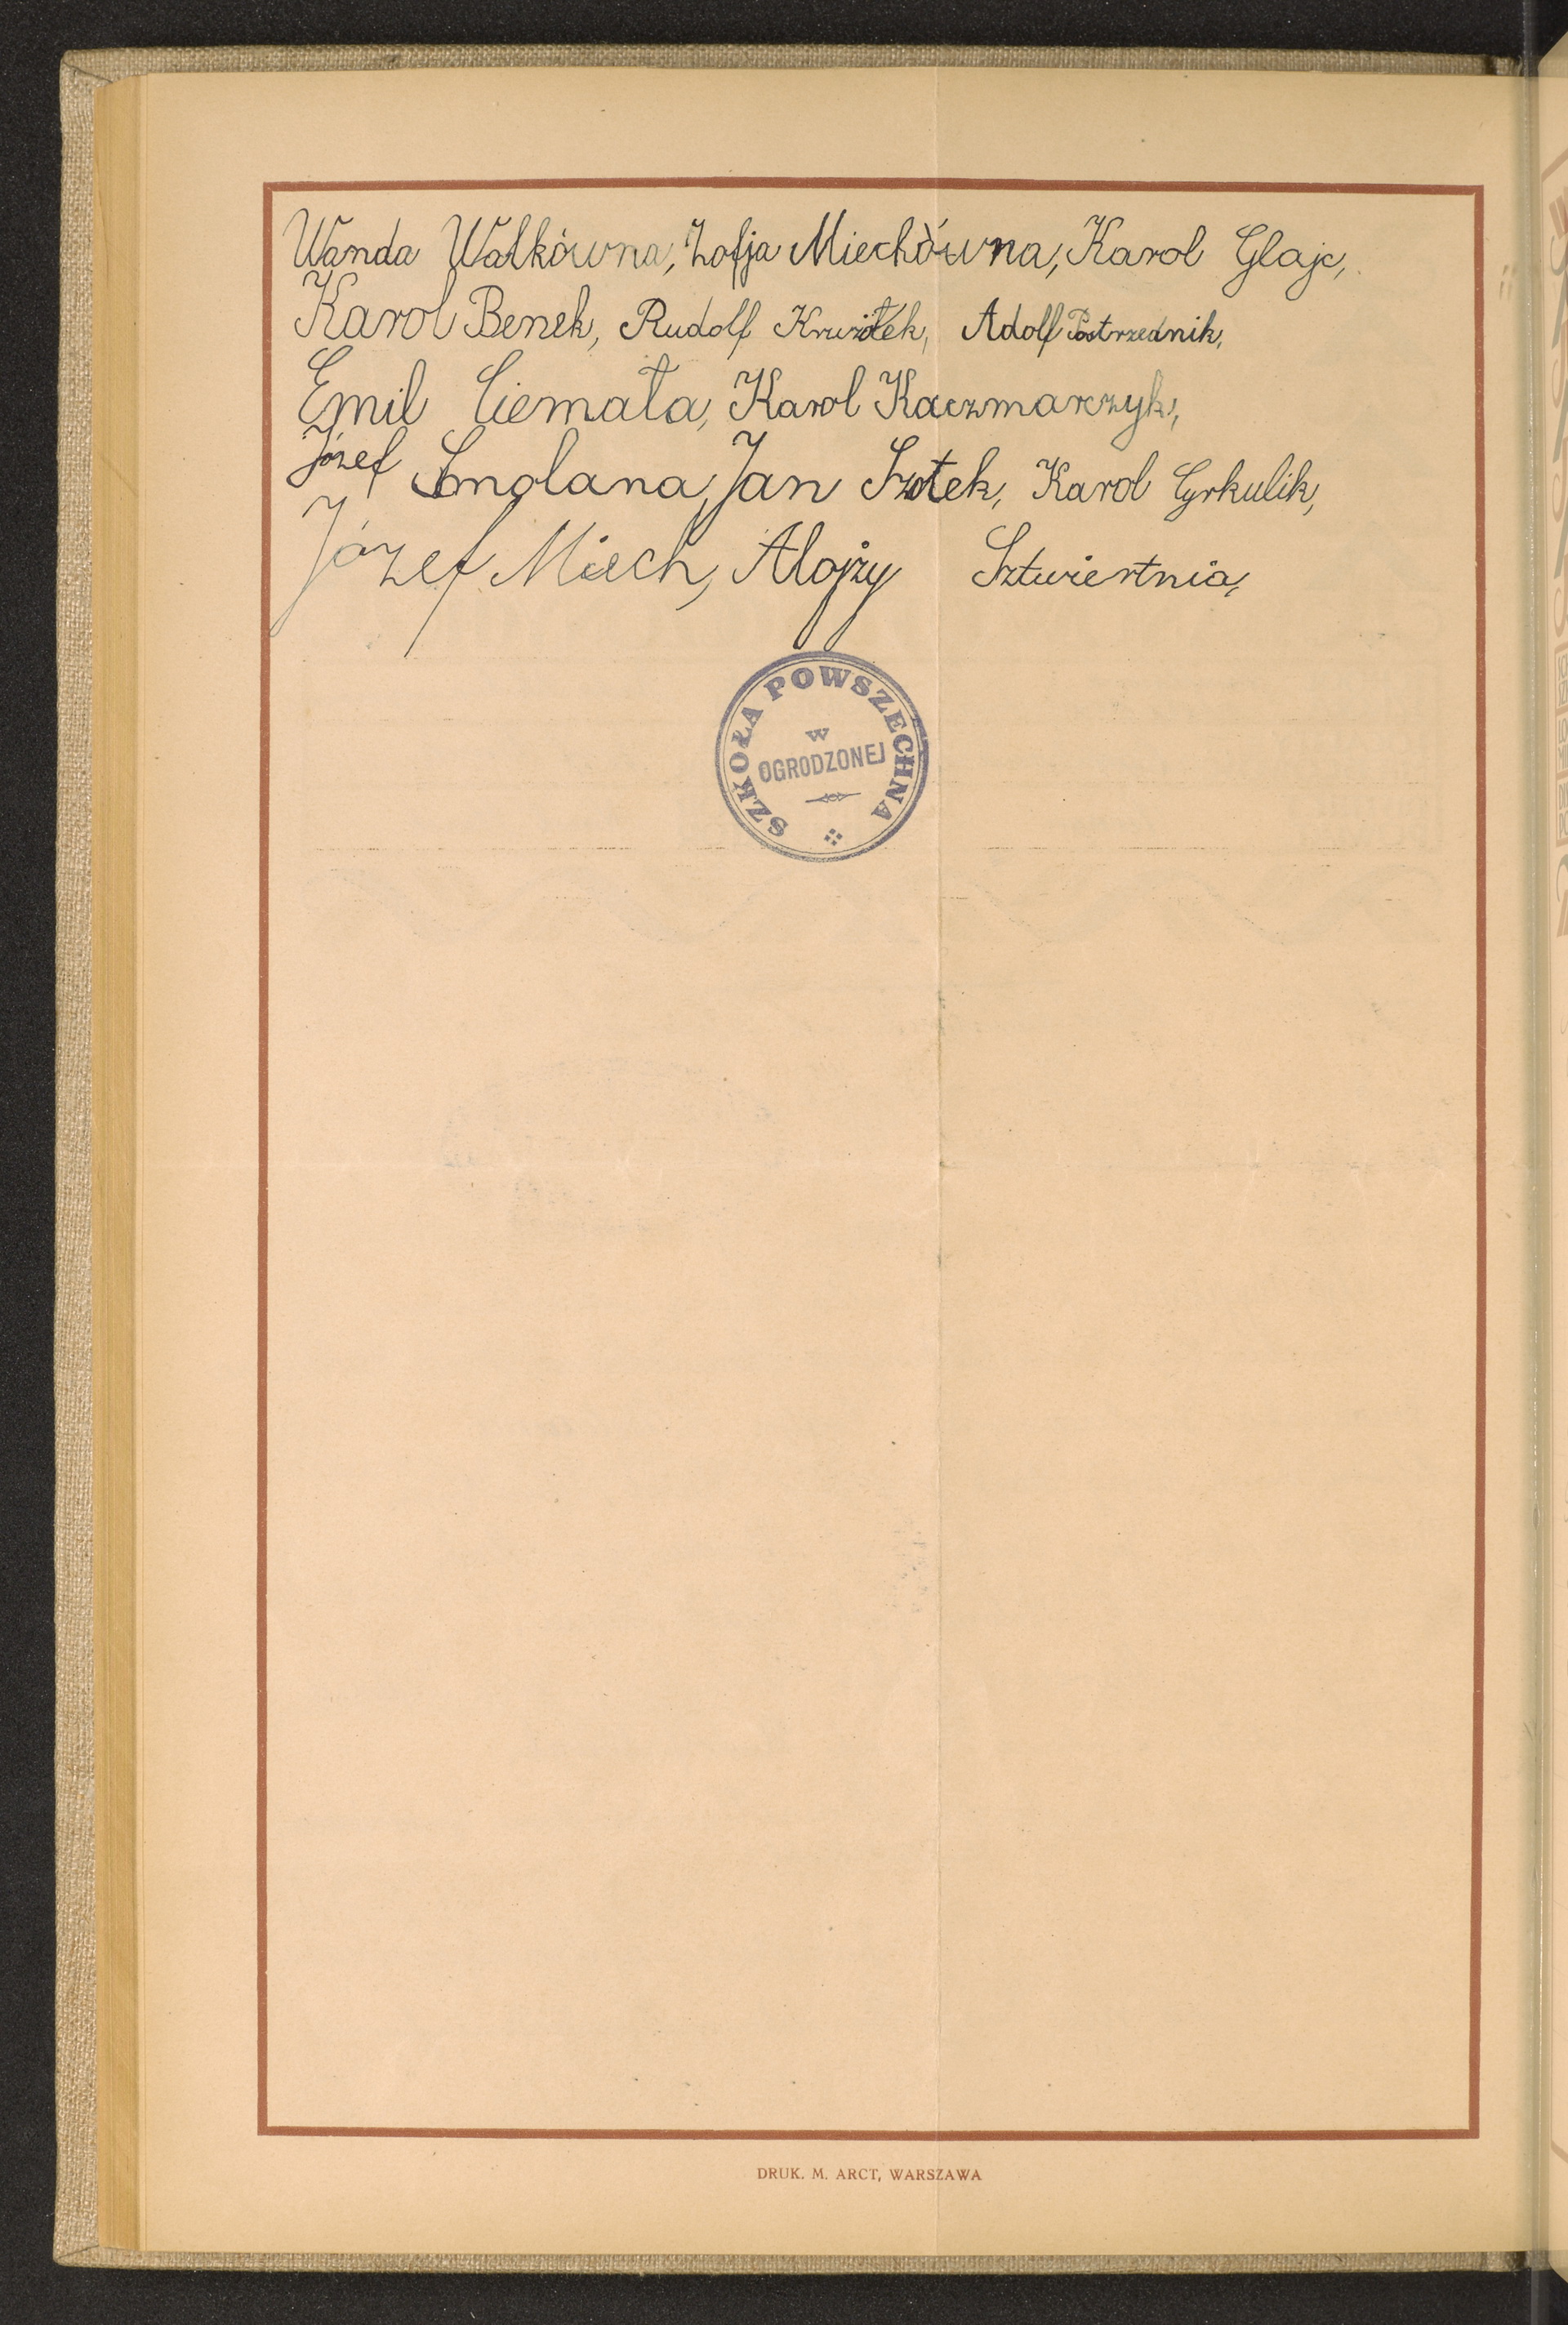 Wanda Wałkówna, Zofja Miechówna, Karol Glajc,
Karol Benek, Rudolf Krużołek, Adolf Postrzednik,
Emil Ciemała, Karol Kaczmarczyk,
Józef Smolana, Jan Szotek, Karol Cyrkulik,
Józef Miech, Alojzy Sztwiertnia,
SZKOŁA POWSZECHNA
w
OGRODZONEJ
DRUK. M. ARCT, WARSZAWA